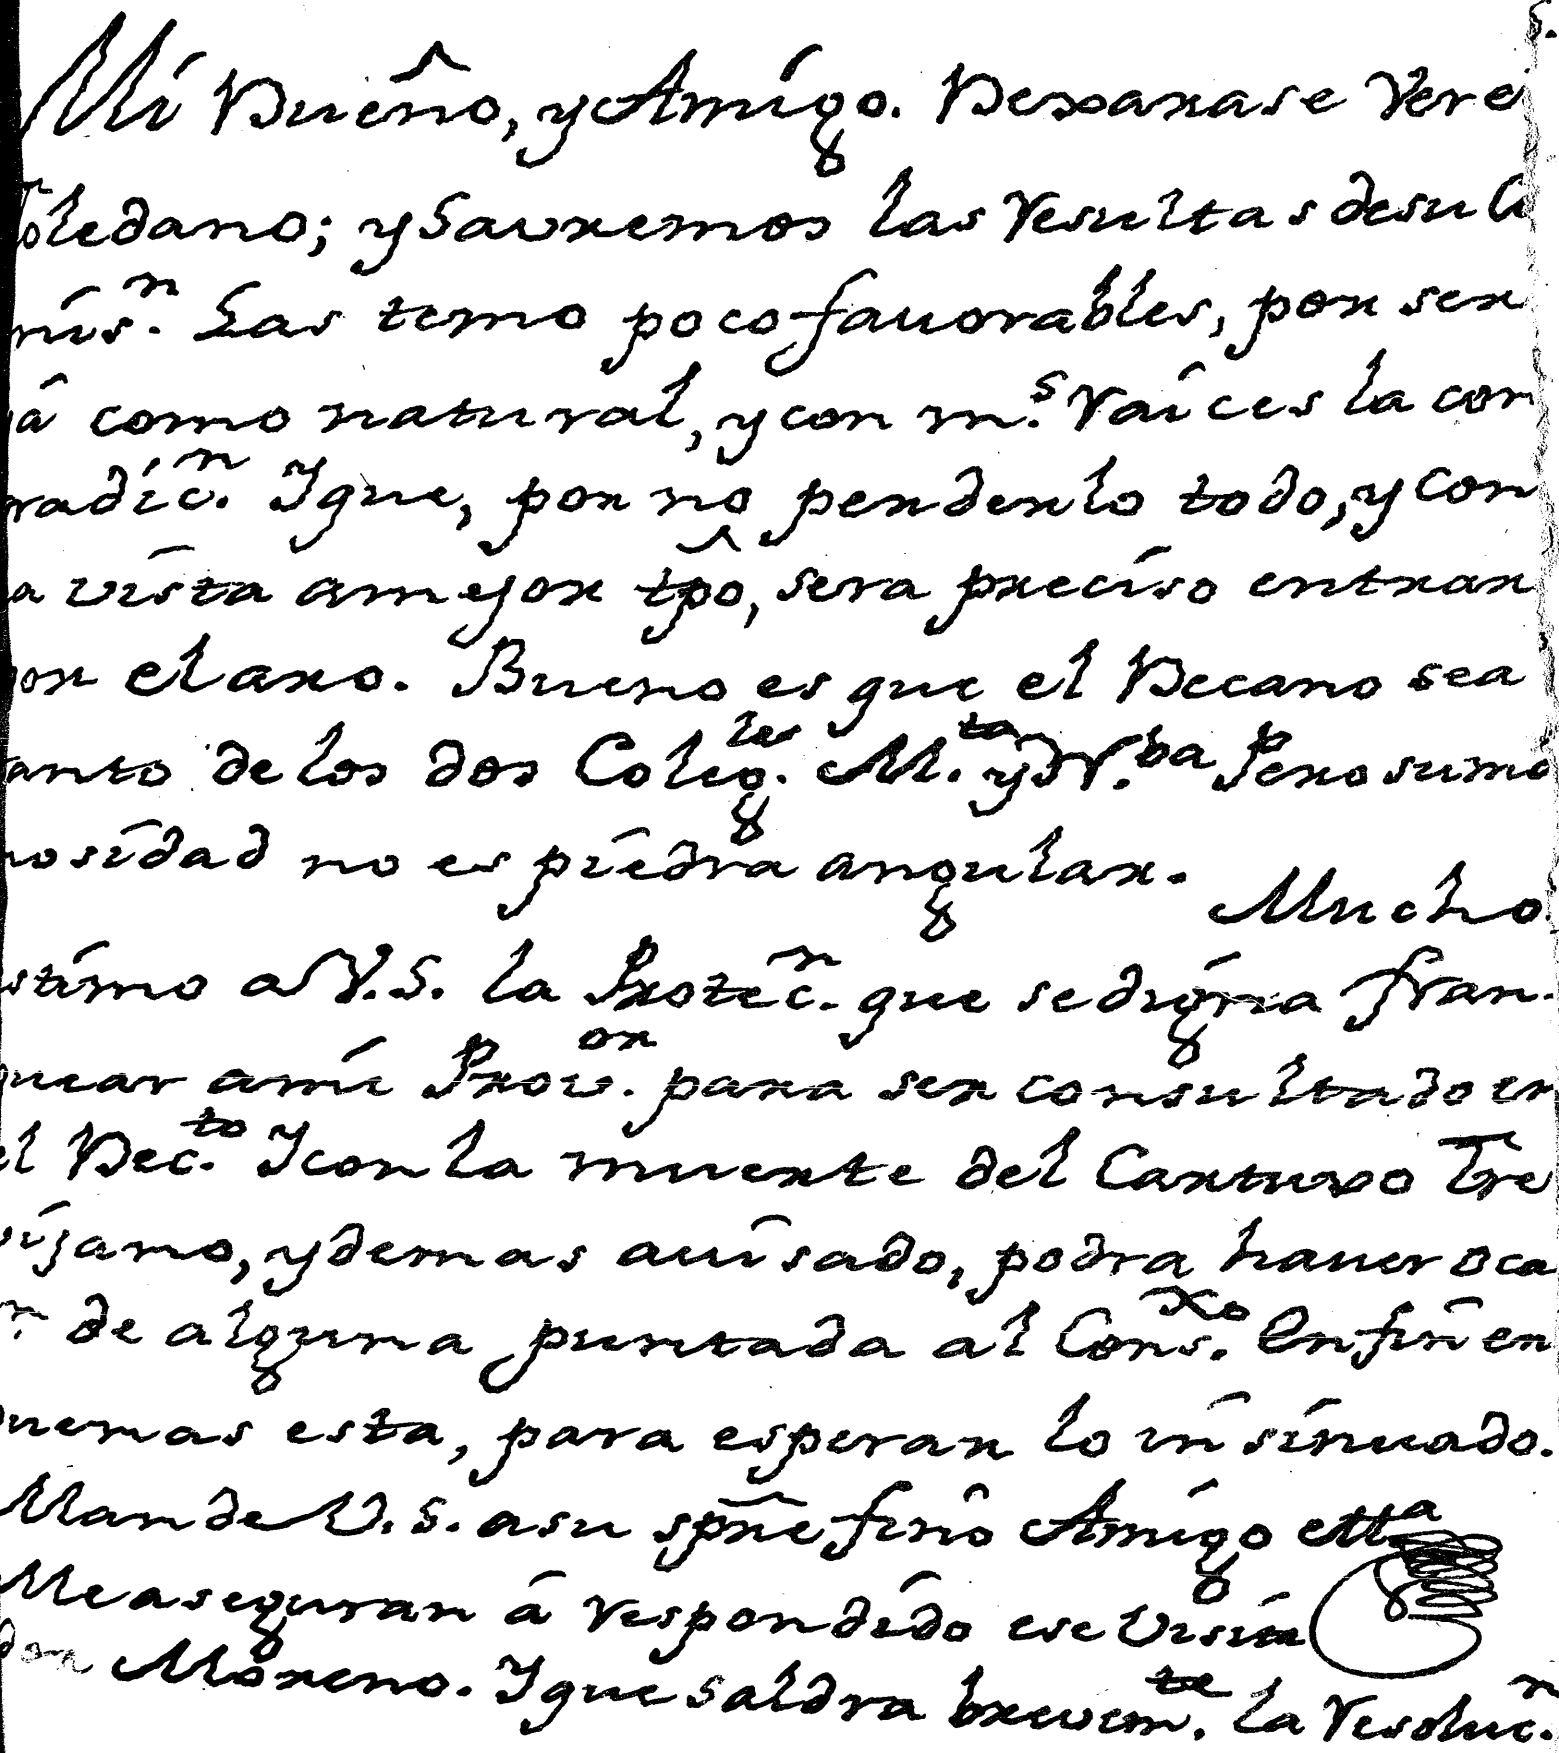 Mi Dueño, y Amigo. Dexarase Vere
Toledano; y Savremos las Resultas de su Co
mis.n Las temo poco favorables, por ser
ya como natural, y con m.s Raices la con
tradic.n Y que, por no perderlo todo, y con
la vista a mejor tpô, sera preciso entrar
por el aro. Bueno es que el Decano sea
tanto de los dos Coleg.les M.ta y N.ba Pero sumo
nosidad no es piedra angular. Mucho
stimo a V.S. la Protec.n que se digna fran
quear a mi Prov.or para ser consultado en
el Dec.to Y con la muerte del Cartuxo Tre
vijano, y demas avisado, podra haver oca
n de alguna puntada al Cons.xo En fin en
quemas esta, para esperar lo insinuado.
Mande V.S. a su spre fino Amigo
Me aseguran â respondido ese Visita
dor Moreno. Y que saldra brevem.te la Resoluc.n